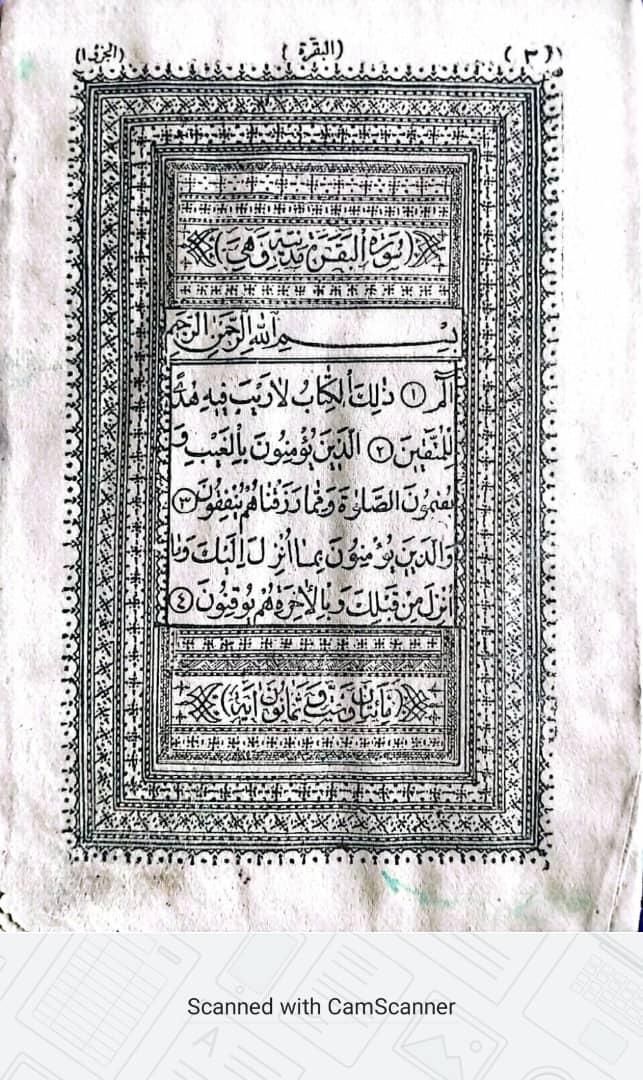 (الجزء ١) (البقرة) (٣)
(سورة البقرة مدنية وهي)
بسم الله الرحمن الرحيم
الٓمٓ ١ ذٰلِكَ الْكِتَابُ لَارَيْبَ فِيهِ هُدًى
لِلْمُتَّقِينَ ٢ الَّذِينَ يُؤْمِنُونَ بِالْغَيْبِ وَ
يُقِيمُونَ الصَّلٰوةَ وَمِمَّا رَزَقْنَاهُمْ يُنْفِقُونَ ٣
وَالَّذِينَ يُؤْمِنُونَ بِمَا اُنْزِلَ اِلَيْكَ وَمَا
اُنْزِلَ مِنْ قَبْلِكَ وَبِالْاٰخِرَةِ هُمْ يُوقِنُونَ ٤
(مائتان وست وثمانون اية)
Scanned with CamScanner